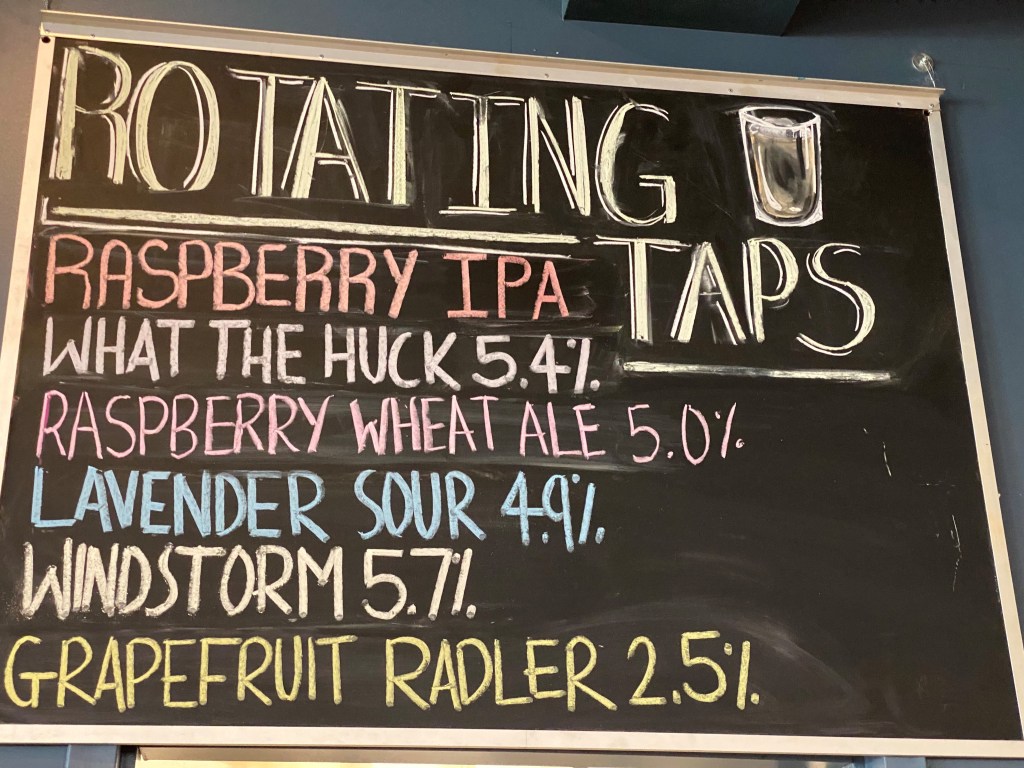 ROTATING
TAPS
RASPBERRY IPA
WHAT THE HUCK 5.4%
RASPBERRY WHEAT ALE 5.0%
LAVENDER SOUR 4.9%
WINDSTORM 5.7%
GRAPEFRUIT RADLER 2.5%